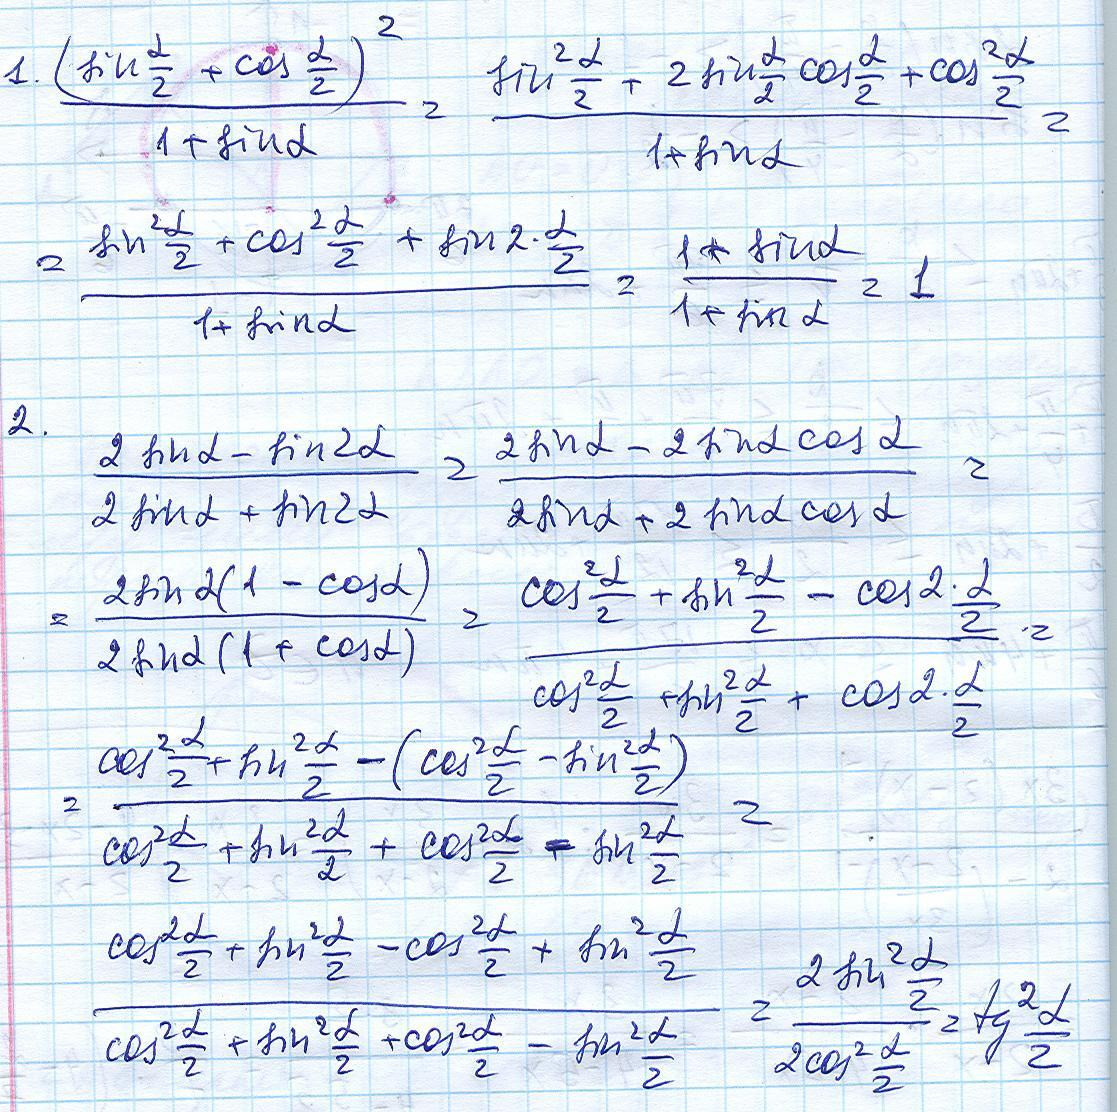 1. (sin α/2 + cos α/2)² / (1 + sin α) = (sin² α/2 + 2 sin α/2 cos α/2 + cos² α/2) / (1 + sin α) =
= (sin² α/2 + cos² α/2 + sin 2 · α/2) / (1 + sin α) = (1 + sin α) / (1 + sin α) = 1
2.
(2 sin α – sin 2α) / (2 sin α + sin 2α) = (2 sin α – 2 sin α cos α) / (2 sin α + 2 sin α cos α) =
= 2 sin α (1 – cos α) / 2 sin α (1 + cos α) = (cos² α/2 + sin² α/2 – cos 2 · α/2) / (cos² α/2 + sin² α/2 + cos 2 · α/2) =
= (cos² α/2 + sin² α/2 – (cos² α/2 – sin² α/2)) / (cos² α/2 + sin² α/2 + cos² α/2 – sin² α/2) =
(cos² α/2 + sin² α/2 – cos² α/2 + sin² α/2) / (cos² α/2 + sin² α/2 + cos² α/2 – sin² α/2) = 2 sin² α/2 / 2 cos² α/2 = tg² α/2